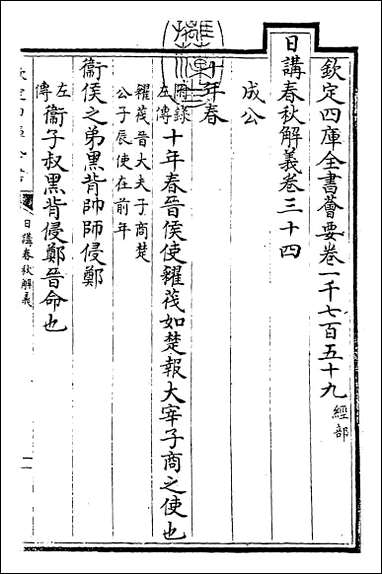 欽定四庫全書薈要卷一千七百五十九 經部
日講春秋解義卷三十四
成公
十年春
附錄左傳 十年春晉侯使糴茷如楚報大宰子商之使也
糴茷晉大夫子商楚公子辰使在前年
衞侯之弟黑背帥師侵鄭
左傳 衞子叔黑背侵鄭晉命也
日講春秋解義
一